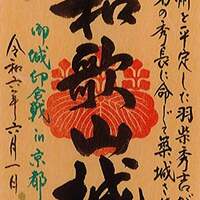 州を平定した羽柴秀吉が
弟の秀長に命じて築城さ
和歌山城
御城印合戦 in 京都
令和六年六月一日